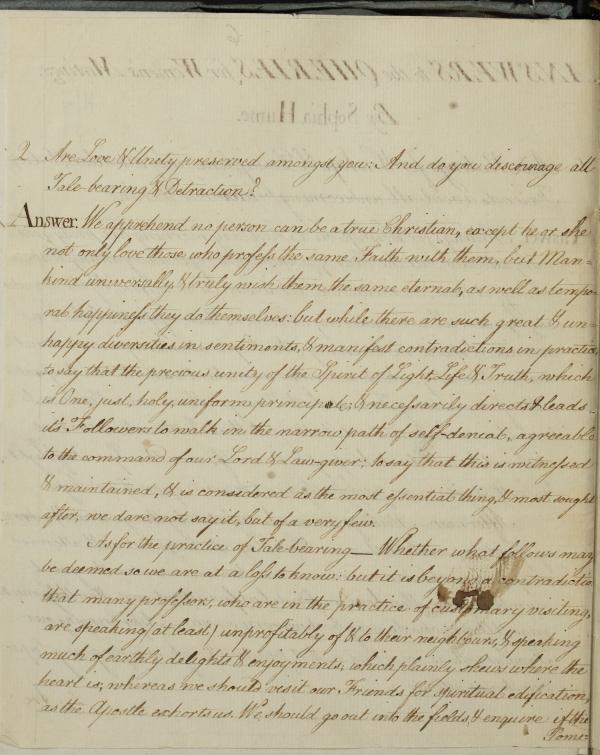 ANSWERS to the QUERIES, for Women's Meetings.
By Sophia Hume.
2 Are Love & Unity preserved amongst you: And do you discourage all
Tale-bearing & Detraction?
Answer. We apprehend no person can be a true Christian, except he or she
not only love those who profess the same Faith with them, but Man=
kind universally, & truly wish them the same eternal, as well as tempo-
ral happiness they do themselves: but while there are such great & un-
happy diversities in sentiments, & manifest contradictions in practice,
to say that the precious unity of the Spirit of Light, Life & Truth, which
is One, just, holy, uniform principle; & necessarily directs & leads
it's Followers to walk in the narrow path of self-denial, agreeable
to the command of our Lord & Law-giver: to say that this is witnessed
& maintained, & is considered as the most essential thing, & most sought
after, we dare not say it, but of a very few.
As for the practice of Tale-bearing— Whether what follows may
be deemed so we are at a loss to know: but it is beyond a contradiction
that many professors, who are in the practice of customary visiting,
are speaking (at least) unprofitably of & to their neighbours, & speaking
much of earthly delights & enjoyments, which plainly shews where the
heart is; whereas we should visit our Friends for spiritual edification,
as the Apostle exhorts us. We should go out into the fields, & enquire if the
Pome=